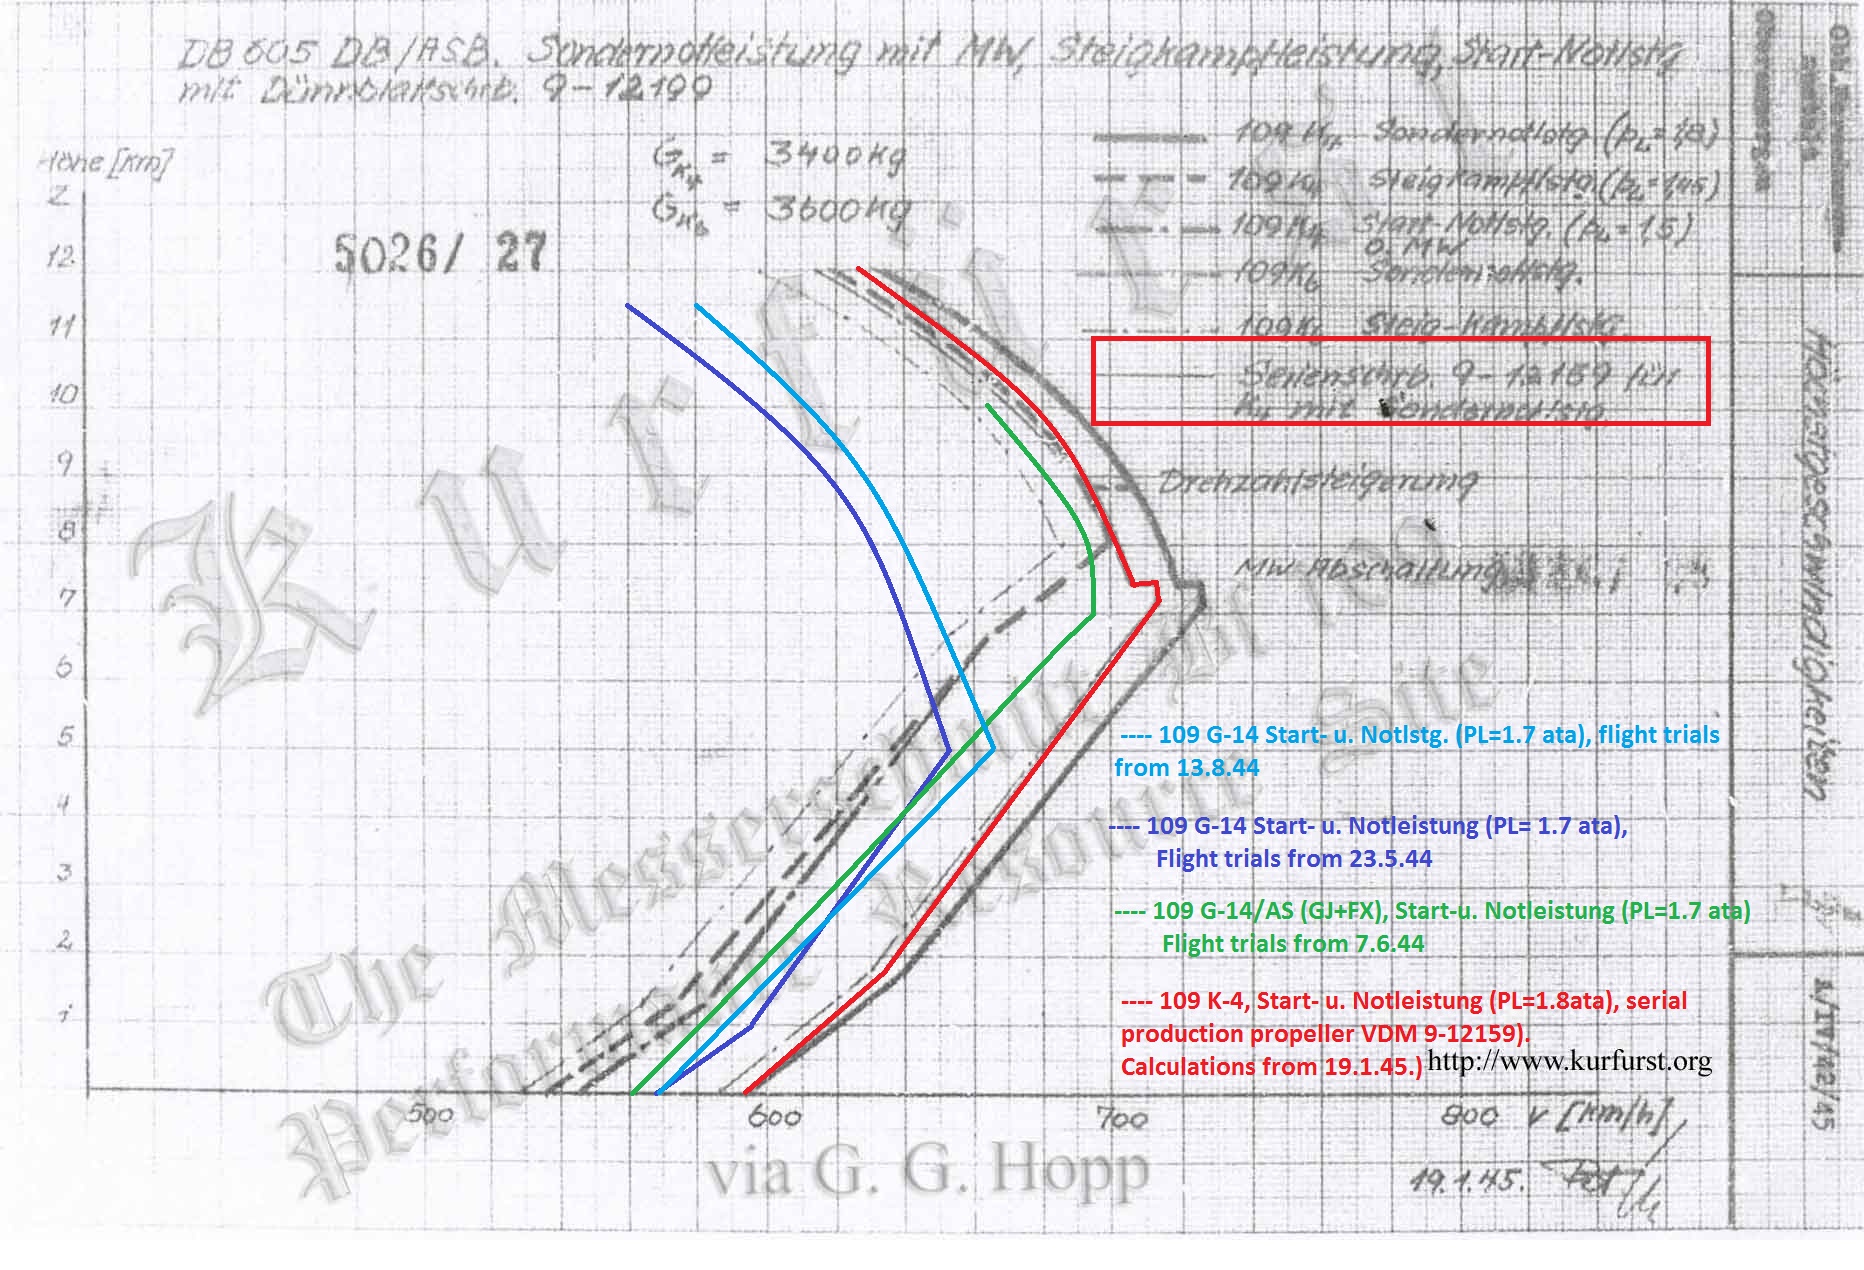 DB 605 DB/ASB. Sondernotleistung mit MW, Steigkampfleistung, Start-Notlstg
mit Dünnblattschrb. 9-12199
Höhe [km]
G K4 = 3400kg
G K6 = 3600kg
5026/ 27
109 K4 Sondernotlstg (pL=1,8)
109 K4 Steigkampflstg (pL=1,45)
109 K4 Start-Notlstg. (pL=1,5)
o. MW
109 K6 Sondernotlstg.
109 K6 Steig-Kampflstg
Serienschrb 9-12159 für
K4 mit Sondernotlstg
Drehzahlsteigerung
MW Abschaltung
12
11
10
9
8
7
6
5
4
3
2
1
Kurfürst
The Messerschmitt Bf 109
Performance Resource Site
---- 109 G-14 Start- u. Notlstg. (PL=1.7 ata), flight trials
from 13.8.44
---- 109 G-14 Start- u. Notleistung (PL= 1.7 ata),
Flight trials from 23.5.44
---- 109 G-14/AS (GJ+FX), Start-u. Notleistung (PL=1.7 ata)
Flight trials from 7.6.44
---- 109 K-4, Start- u. Notleistung (PL=1.8ata), serial
production propeller VDM 9-12159).
Calculations from 19.1.45.)
http://www.kurfurst.org
500 600 700 800 v [km/h]
via G. G. Hopp
19.1.45.
Höchstgeschwindigkeiten